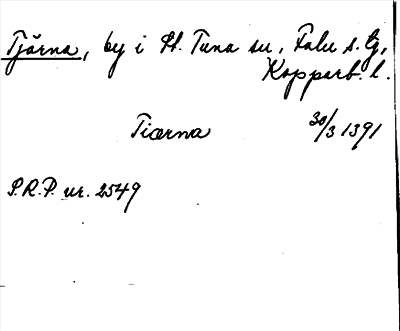 Tjärna, by i St. Tuna sn, Falu s. tg,
Kopparb. l.
Tiærna 30/3 1391
P.R.P. nr. 2549